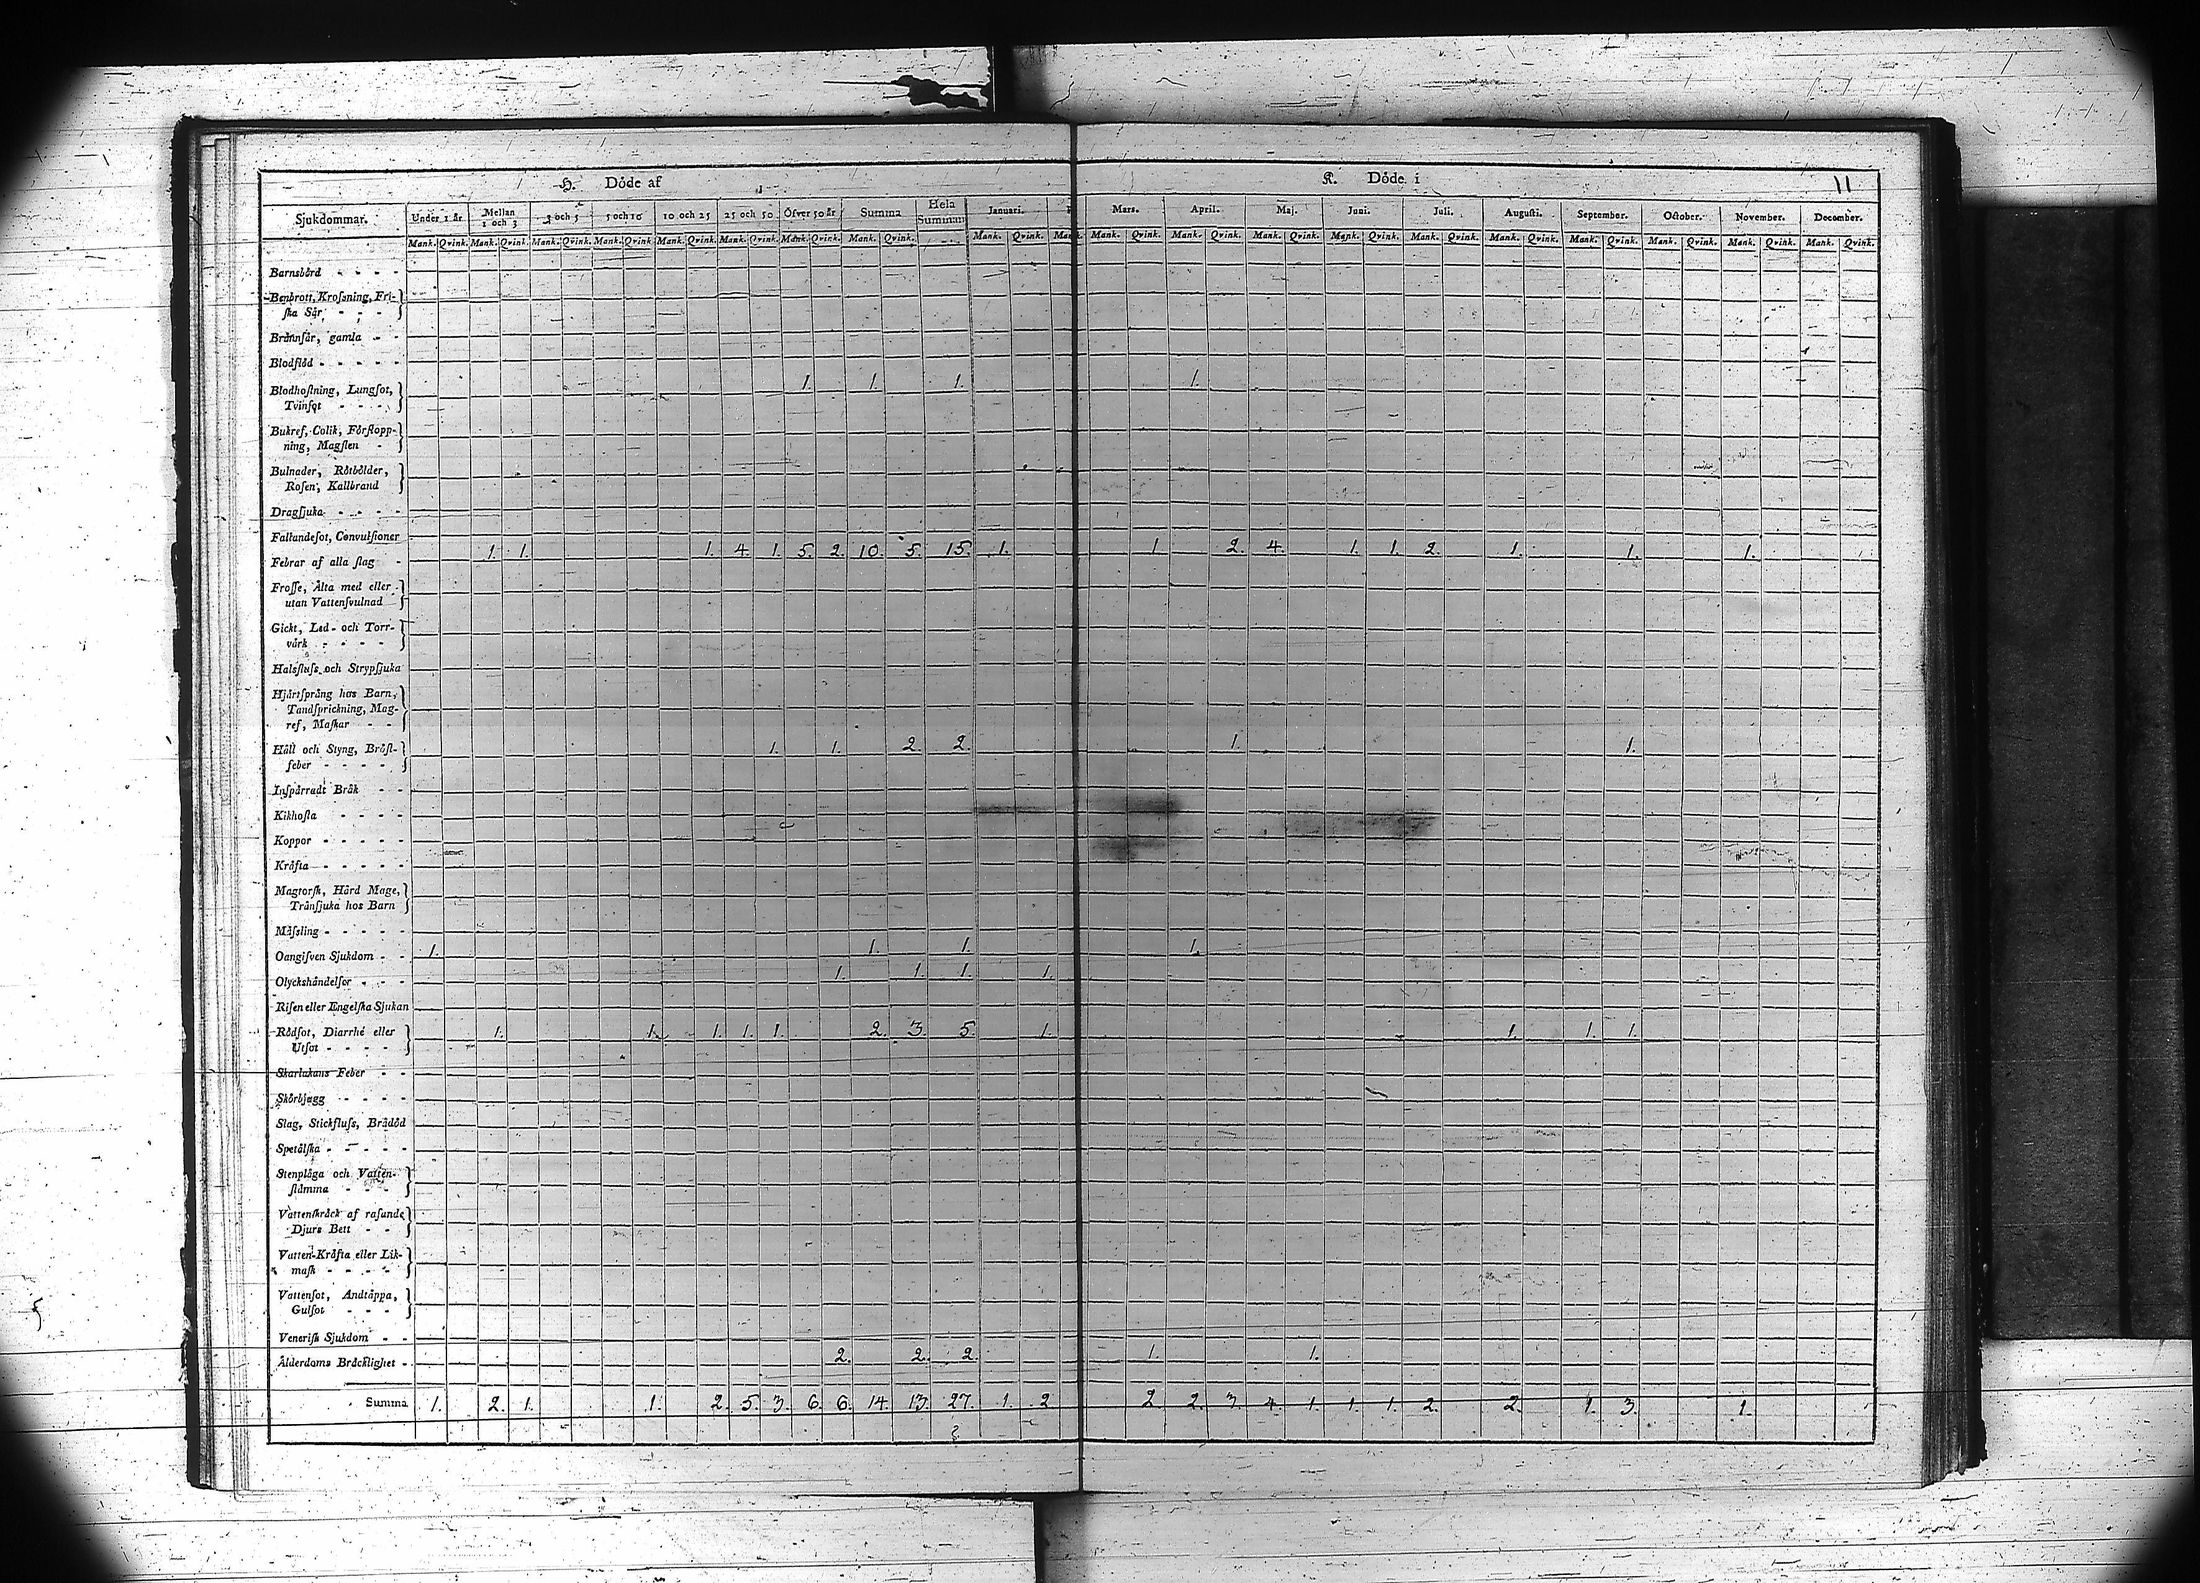 H. Döde af
K. Döde i
11
Sjukdommar. Under 1 år. Mellan 1 och 3 3 och 5 5 och 10 10 och 25 25 och 50 Öfver 50 år Summa Hela Summan Januari. Mars. April. Maj. Juni. Juli. Augusti. September. October. November. December.
Mank. Qvink. Mank. Qvink. Mank. Qvink. Mank. Qvink. Mank. Qvink. Mank. Qvink. Mank. Qvink. Mank. Qvink. Mank. Qvink. Mank. Mank. Qvink. Mank. Qvink. Mank. Qvink. Mank. Qvink. Mank. Qvink. Mank. Qvink. Mank. Qvink. Mank. Qvink. Mank. Qvink. Mank. Qvink.
Barnsbörd - - - -
Benbrott, Krossning, Fri-
ska Sår - - -
Brännsår, gamla - -
Blodflöd - - - - -
Blodhostning, Lungsot, 1. 1. 1. 1.
Tvinsot - - -
Bukref, Colik, Förstopp-
ning, Magsten -
Bulnader, Rötbölder,
Rosen, Kallbrand
Dragsjuka - - - -
Fallandesot, Convulsioner
Febrar af alla slag - 1. 1. 1. 4. 1. 5. 2. 10. 5. 15. 1. 1. 2. 4. 1. 1. 2. 1. 1. 1.
Frosse, Älta med eller
utan Vattensvulnad
Gickt, Led- och Torr-
värk - - - -
Halsfluss och Strypsjuka
Hjärtsprång hos Barn,
Tandsprickning, Mag-
ref, Maskar - -
Håll och Styng, Bröst- 1. 1. 2. 2. 1. 1.
feber - - - -
Inspärradt Bråk - -
Kikhosta - - - -
Koppor - - - - -
Kräfta - - - - -
Magtorsk, Hård Mage,
Tränsjuka hos Barn
Mässling - - - - -
Oangifven Sjukdom - - 1. 1. 1. 1.
Olyckshändelser - - - 1. 1. 1. 1.
Risen eller Engelska Sjukan
Rödsot, Diarrhé eller 1. 1. 1. 1. 1. 2. 3. 5. 1. 1. 1. 1.
Utsot - - - -
Skarlakans Feber - -
Skörbjugg - - - -
Slag, Stickfluss, Brådöd
Spetälska - - - - -
Stenplåga och Vatten-
stämma - - -
Vattenskräck af rasande
Djurs Bett - -
Vatten-Kräfta eller Lik-
mask - - - -
Vattensot, Andtäppa,
Gulsot - - -
Venerisk Sjukdom - -
Ålderdoms Bräcklighet - 2. 2. 2. 1. 1.
Summa 1. 2. 1. 1. 2. 5. 3. 6. 6. 14. 13. 27. 1. 2. 2. 2. 3. 4. 1. 1. 1. 2. 2. 1. 3. 1.